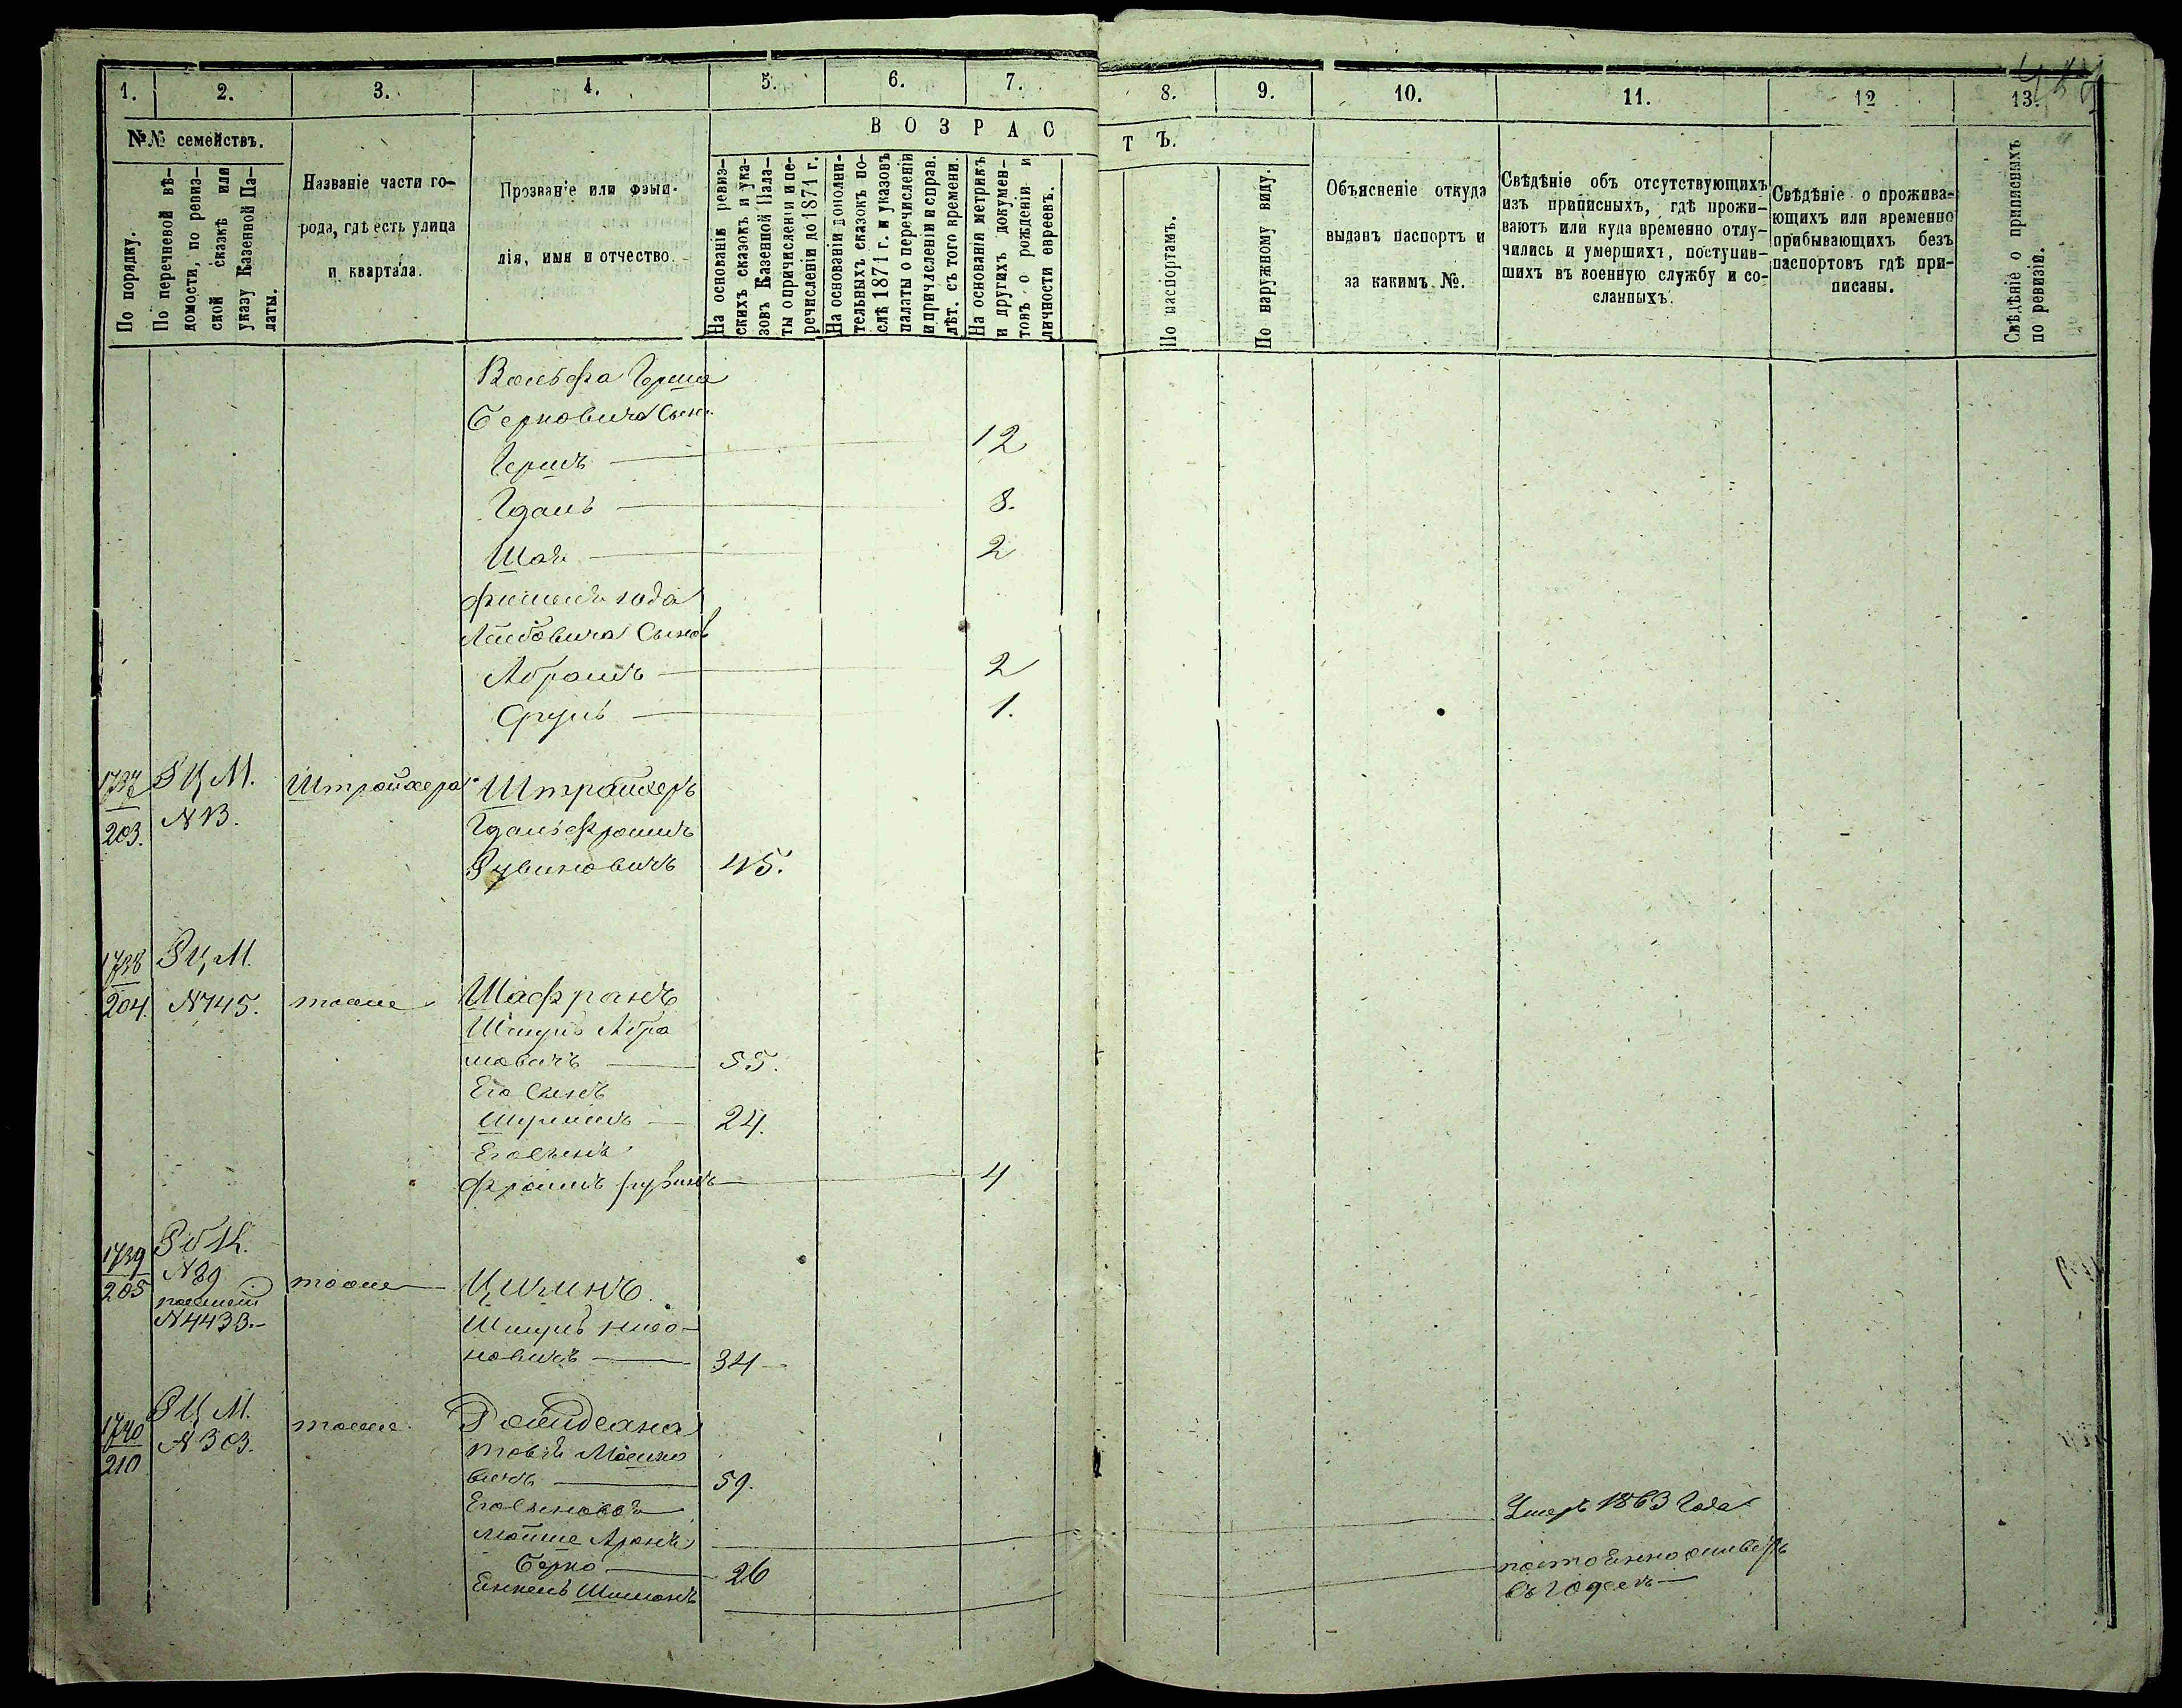 1. 2. 3. 4. 5. 6. 7. 8. 9. 10. 11. 12 13.
№№ семействъ.
В О З Р А С Т Ъ.
По порядку.
По перечневой вѣ-
домости, по ревиз-
ской сказкѣ или
указу Казенной Па-
латы.
Названіе части го-
рода, гдѣ есть улица
и квартала.
Прозваніе или фами-
лія, имя и отчество.
На основаніи ревиз-
скихъ сказокъ и ука-
зовъ Казенной Пала-
ты о причисленіи и пе-
речисленіи до 1871 г.
На основаніи дополни-
тельныхъ сказокъ по-
слѣ 1871 г. и указовъ
палаты о перечисленіи
и причисленіи и справ.
лѣт. съ того времени.
На основаніи метрикъ
и другихъ докумен-
товъ о рожденіи и
личности евреевъ.
По паспортамъ.
По наружному виду.
Объясненіе откуда
выданъ паспортъ и
за какимъ №.
Свѣдѣніе объ отсутствующихъ
изъ приписныхъ, гдѣ прожи-
ваютъ или куда временно отлу-
чились и умершихъ, поступив-
шихъ въ военную службу и со-
сланныхъ.
Свѣдѣніе о прожива-
ющихъ или временно
прибывающихъ безъ
паспортовъ гдѣ при-
писаны.
Свѣдѣніе о приписныхъ
по ревизіи.
Вольфа Герша
Берковича Сын.
Гершъ 12
8.
Шая 2
Лейбовича Сынов
Абрамъ 2
Сруль 1.
1737 Р Ц М. Штрайхера Штрайхеръ
203. N 13.
Рувиновичъ 45.
1738 Р Ц М.
204. N 745. тоже Шафранъ
Шмуль Абра
мовичъ 55.
Его Сынъ
24.
Его Сынъ
Фроимъ Рувинъ 4
1739
205 N 89 тоже
N 4433.
Шмуль
новичъ 34
1740 Р Ц М. тоже
210 N 303.
Товій Мошко
вичъ 59.
Его Сыновья
Мойше Аронъ Умеръ 1863 Года
Берко 26
Енкель Шимонъ